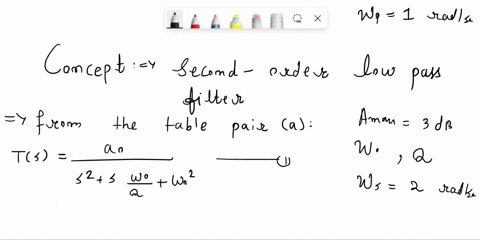 Wp = 1 rad/s
Concept :=> Second-order low pass filter
=> from the table pair (a):
T(s) = a₀ / (s² + s ω₀/Q + ω₀²) —— (1)
Amax = 3 dB
W₀ , Q
Ws = 2 rad/s